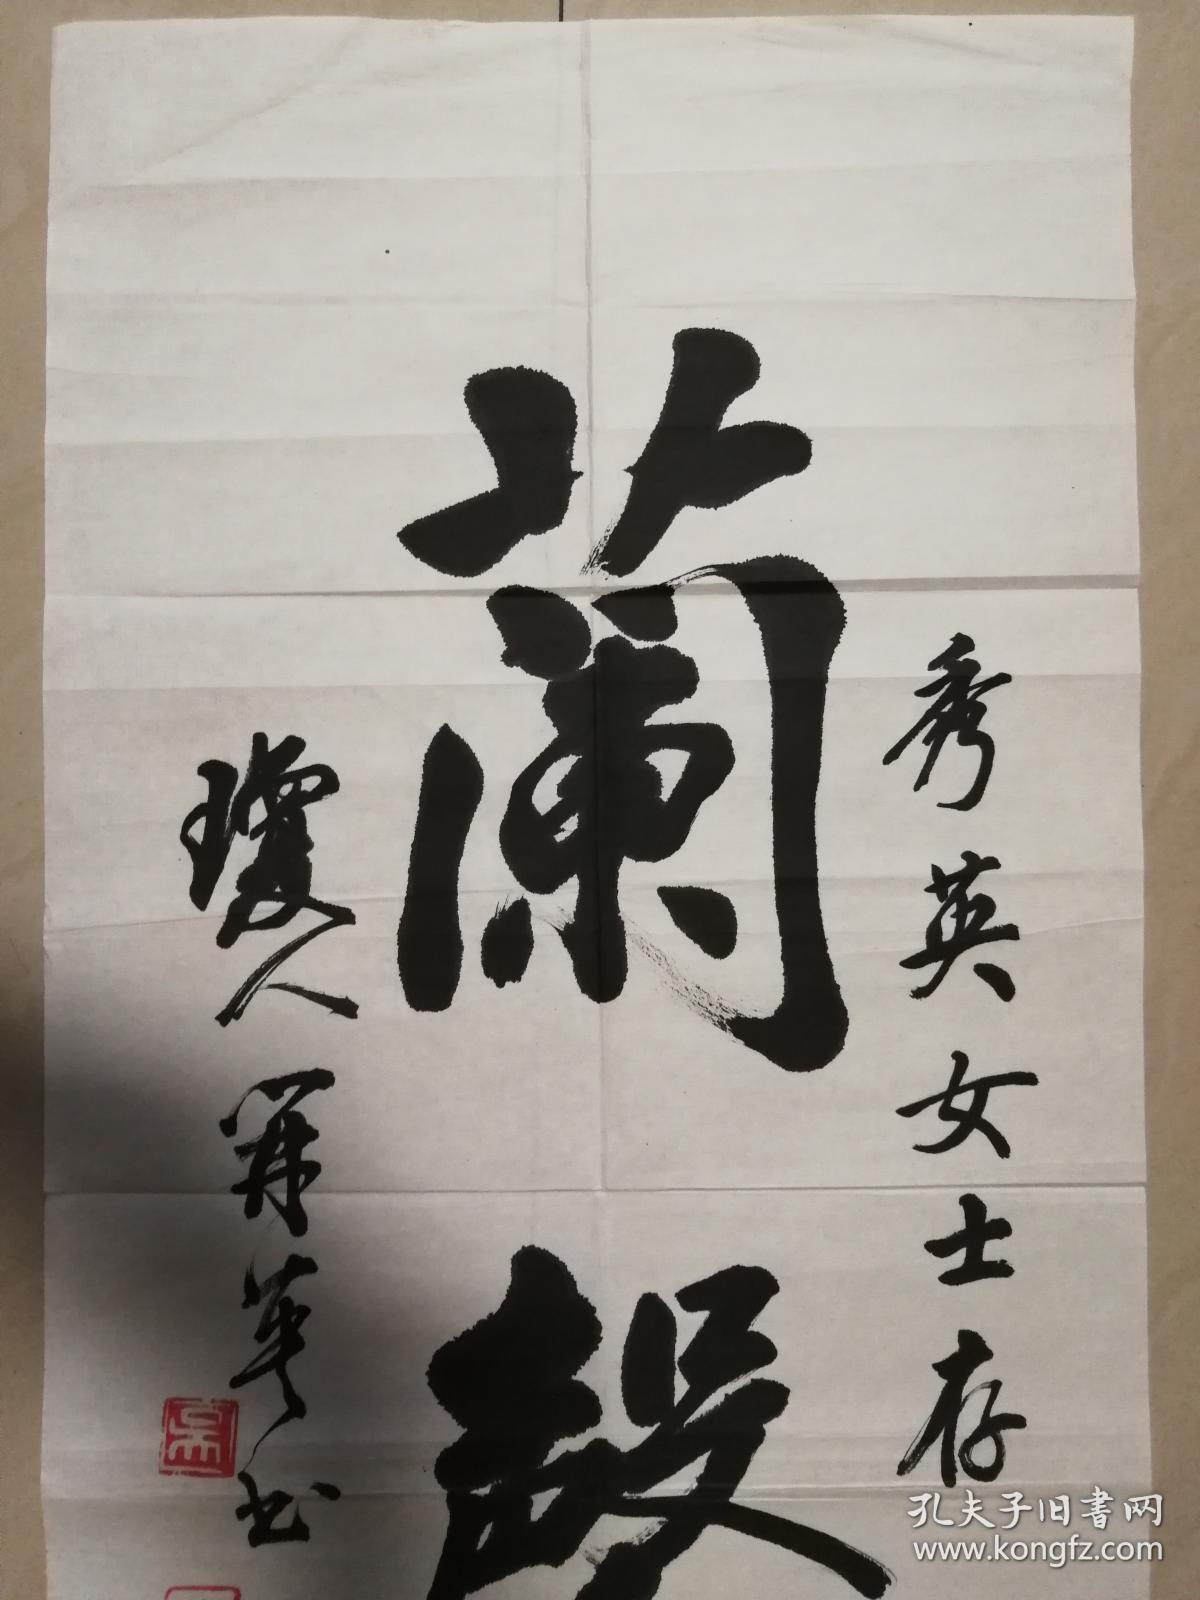 秀英女士存
蘭
瓊人英书
孔夫子旧书网
www.kongfz.com